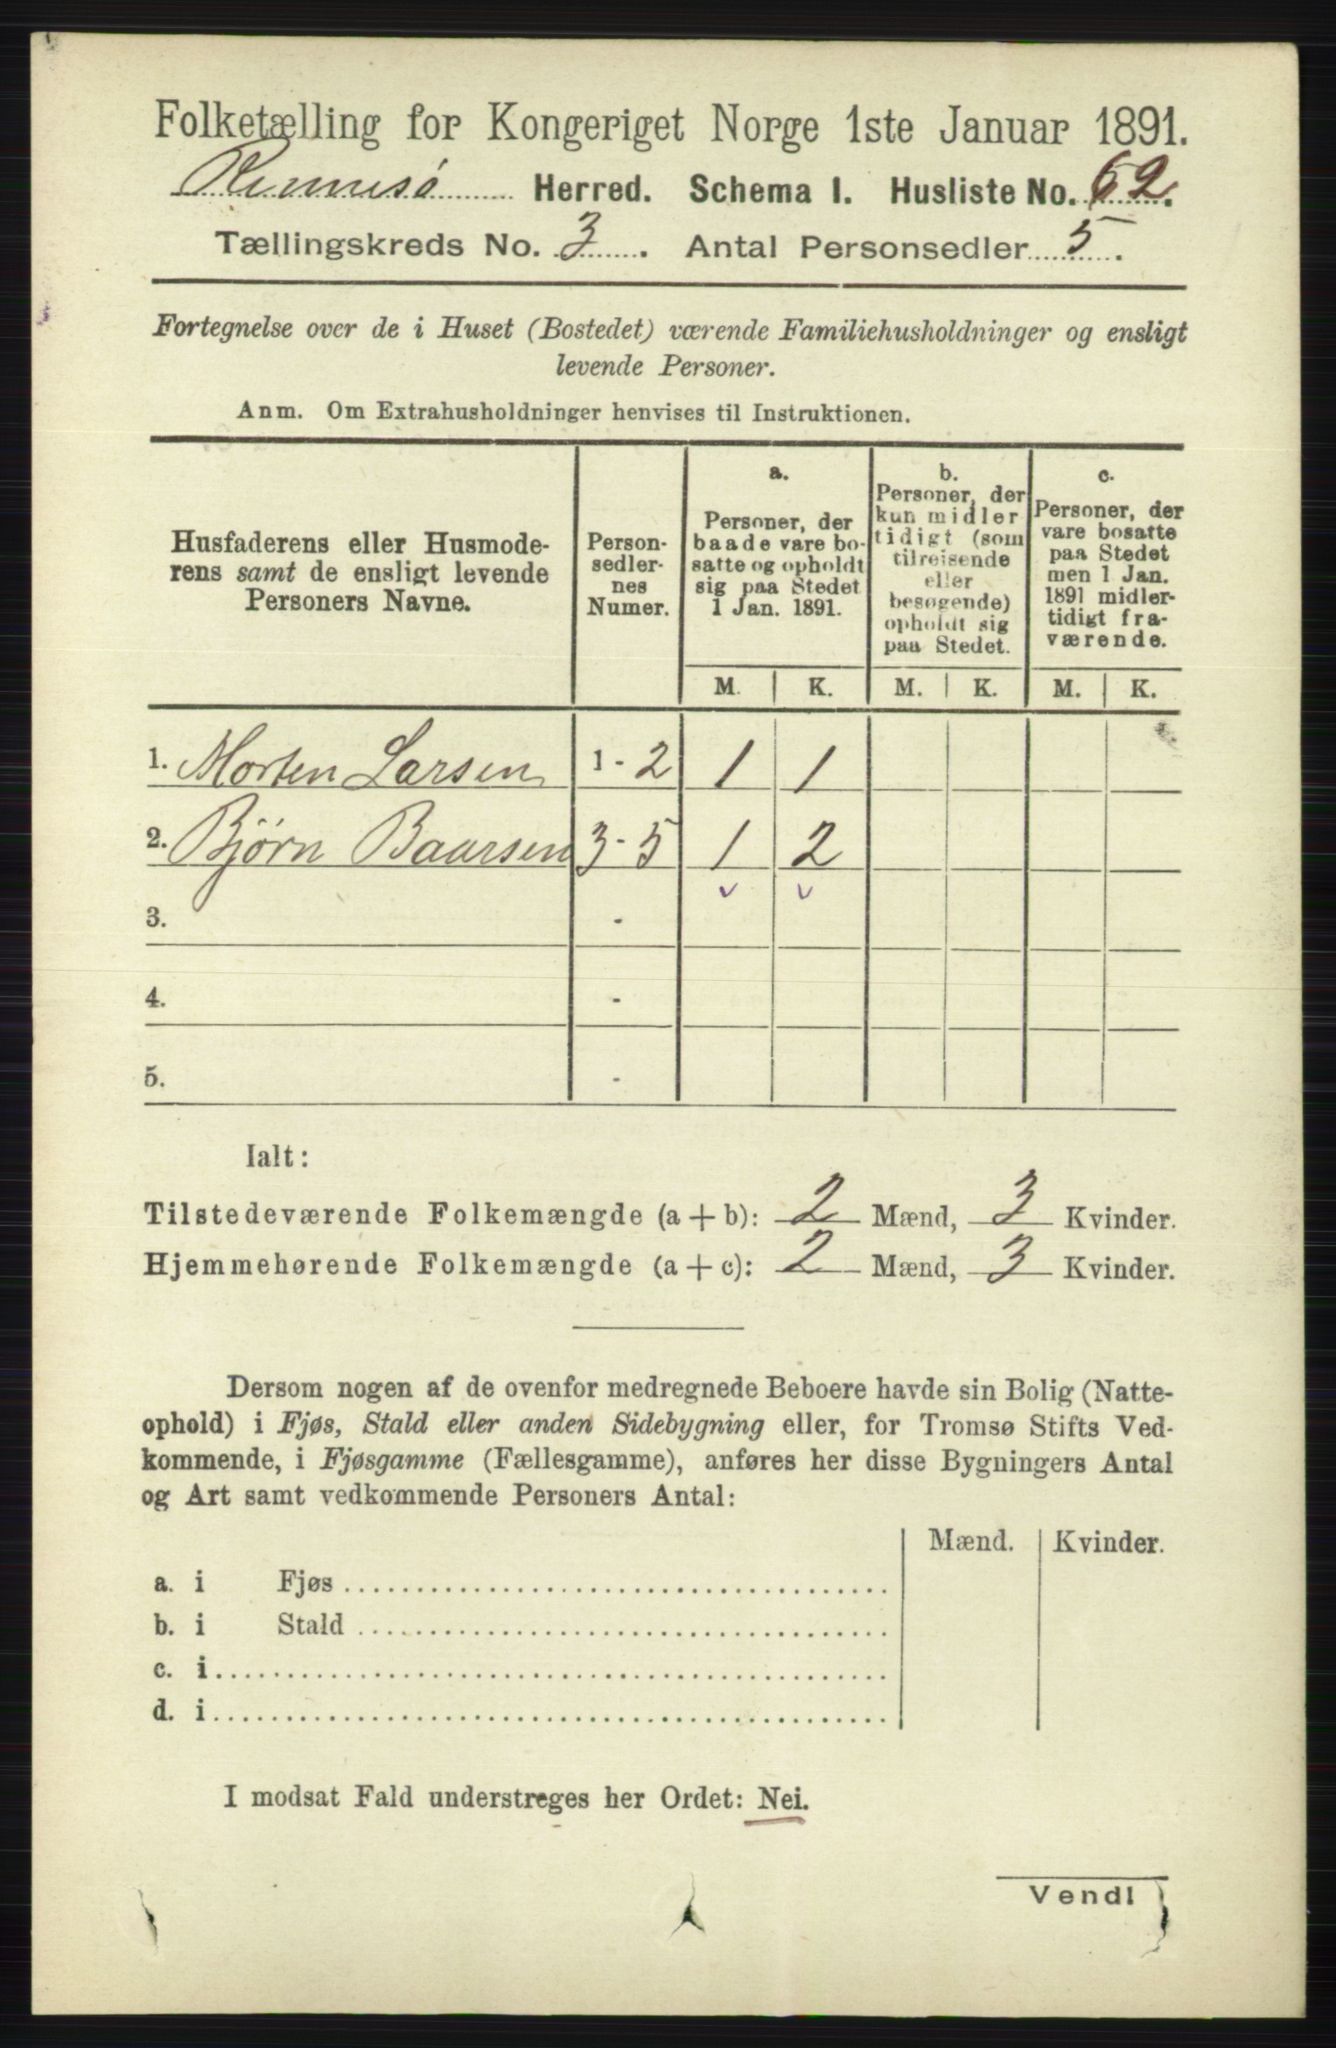 Folketælling for Kongeriget Norge 1ste Januar 1891.
Rennesö Herred. Schema I. Husliste No. 62.
Tællingskreds No. 3. Antal Personsedler 5.
Fortegnelse over de i Huset (Bostedet) værende Familiehusholdninger og ensligt
levende Personer.
Anm. Om Extrahusholdninger henvises til Instruktionen.
Husfaderens eller Husmode-
rens samt de ensligt levende
Personers Navne.
Person-
sedler-
nes
Numer.
a.
Personer, der
baade vare bo-
satte og opholdt
sig paa Stedet
1 Jan. 1891.
b.
Personer, der
kun midler
tidigt (som
tilreisende
eller
besøgende)
opholdt sig
paa Stedet.
c.
Personer, der
vare bosatte
paa Stedet
men 1 Jan.
1891 midler-
tidigt fra-
værende.
M. K. M. K. M. K.
1. Morten Larsen 1 - 2 1 1
2. Bjørn Baarsen 3 - 5 1 2
3. -
4. -
5. -
Ialt:
Tilstedeværende Folkemængde (a + b): 2 Mænd, 3 Kvinder.
Hjemmehørende Folkemængde (a + c): 2 Mænd, 3 Kvinder.
Dersom nogen af de ovenfor medregnede Beboere havde sin Bolig (Natte-
ophold) i Fjøs, Stald eller anden Sidebygning eller, for Tromsø Stifts Ved-
kommende, i Fjøsgamme (Fællesgamme), anføres her disse Bygningers Antal
og Art samt vedkommende Personers Antal:
Mænd. Kvinder.
a. i Fjøs
b. i Stald
c. i
d. i
I modsat Fald understreges her Ordet: Nei.
Vend!